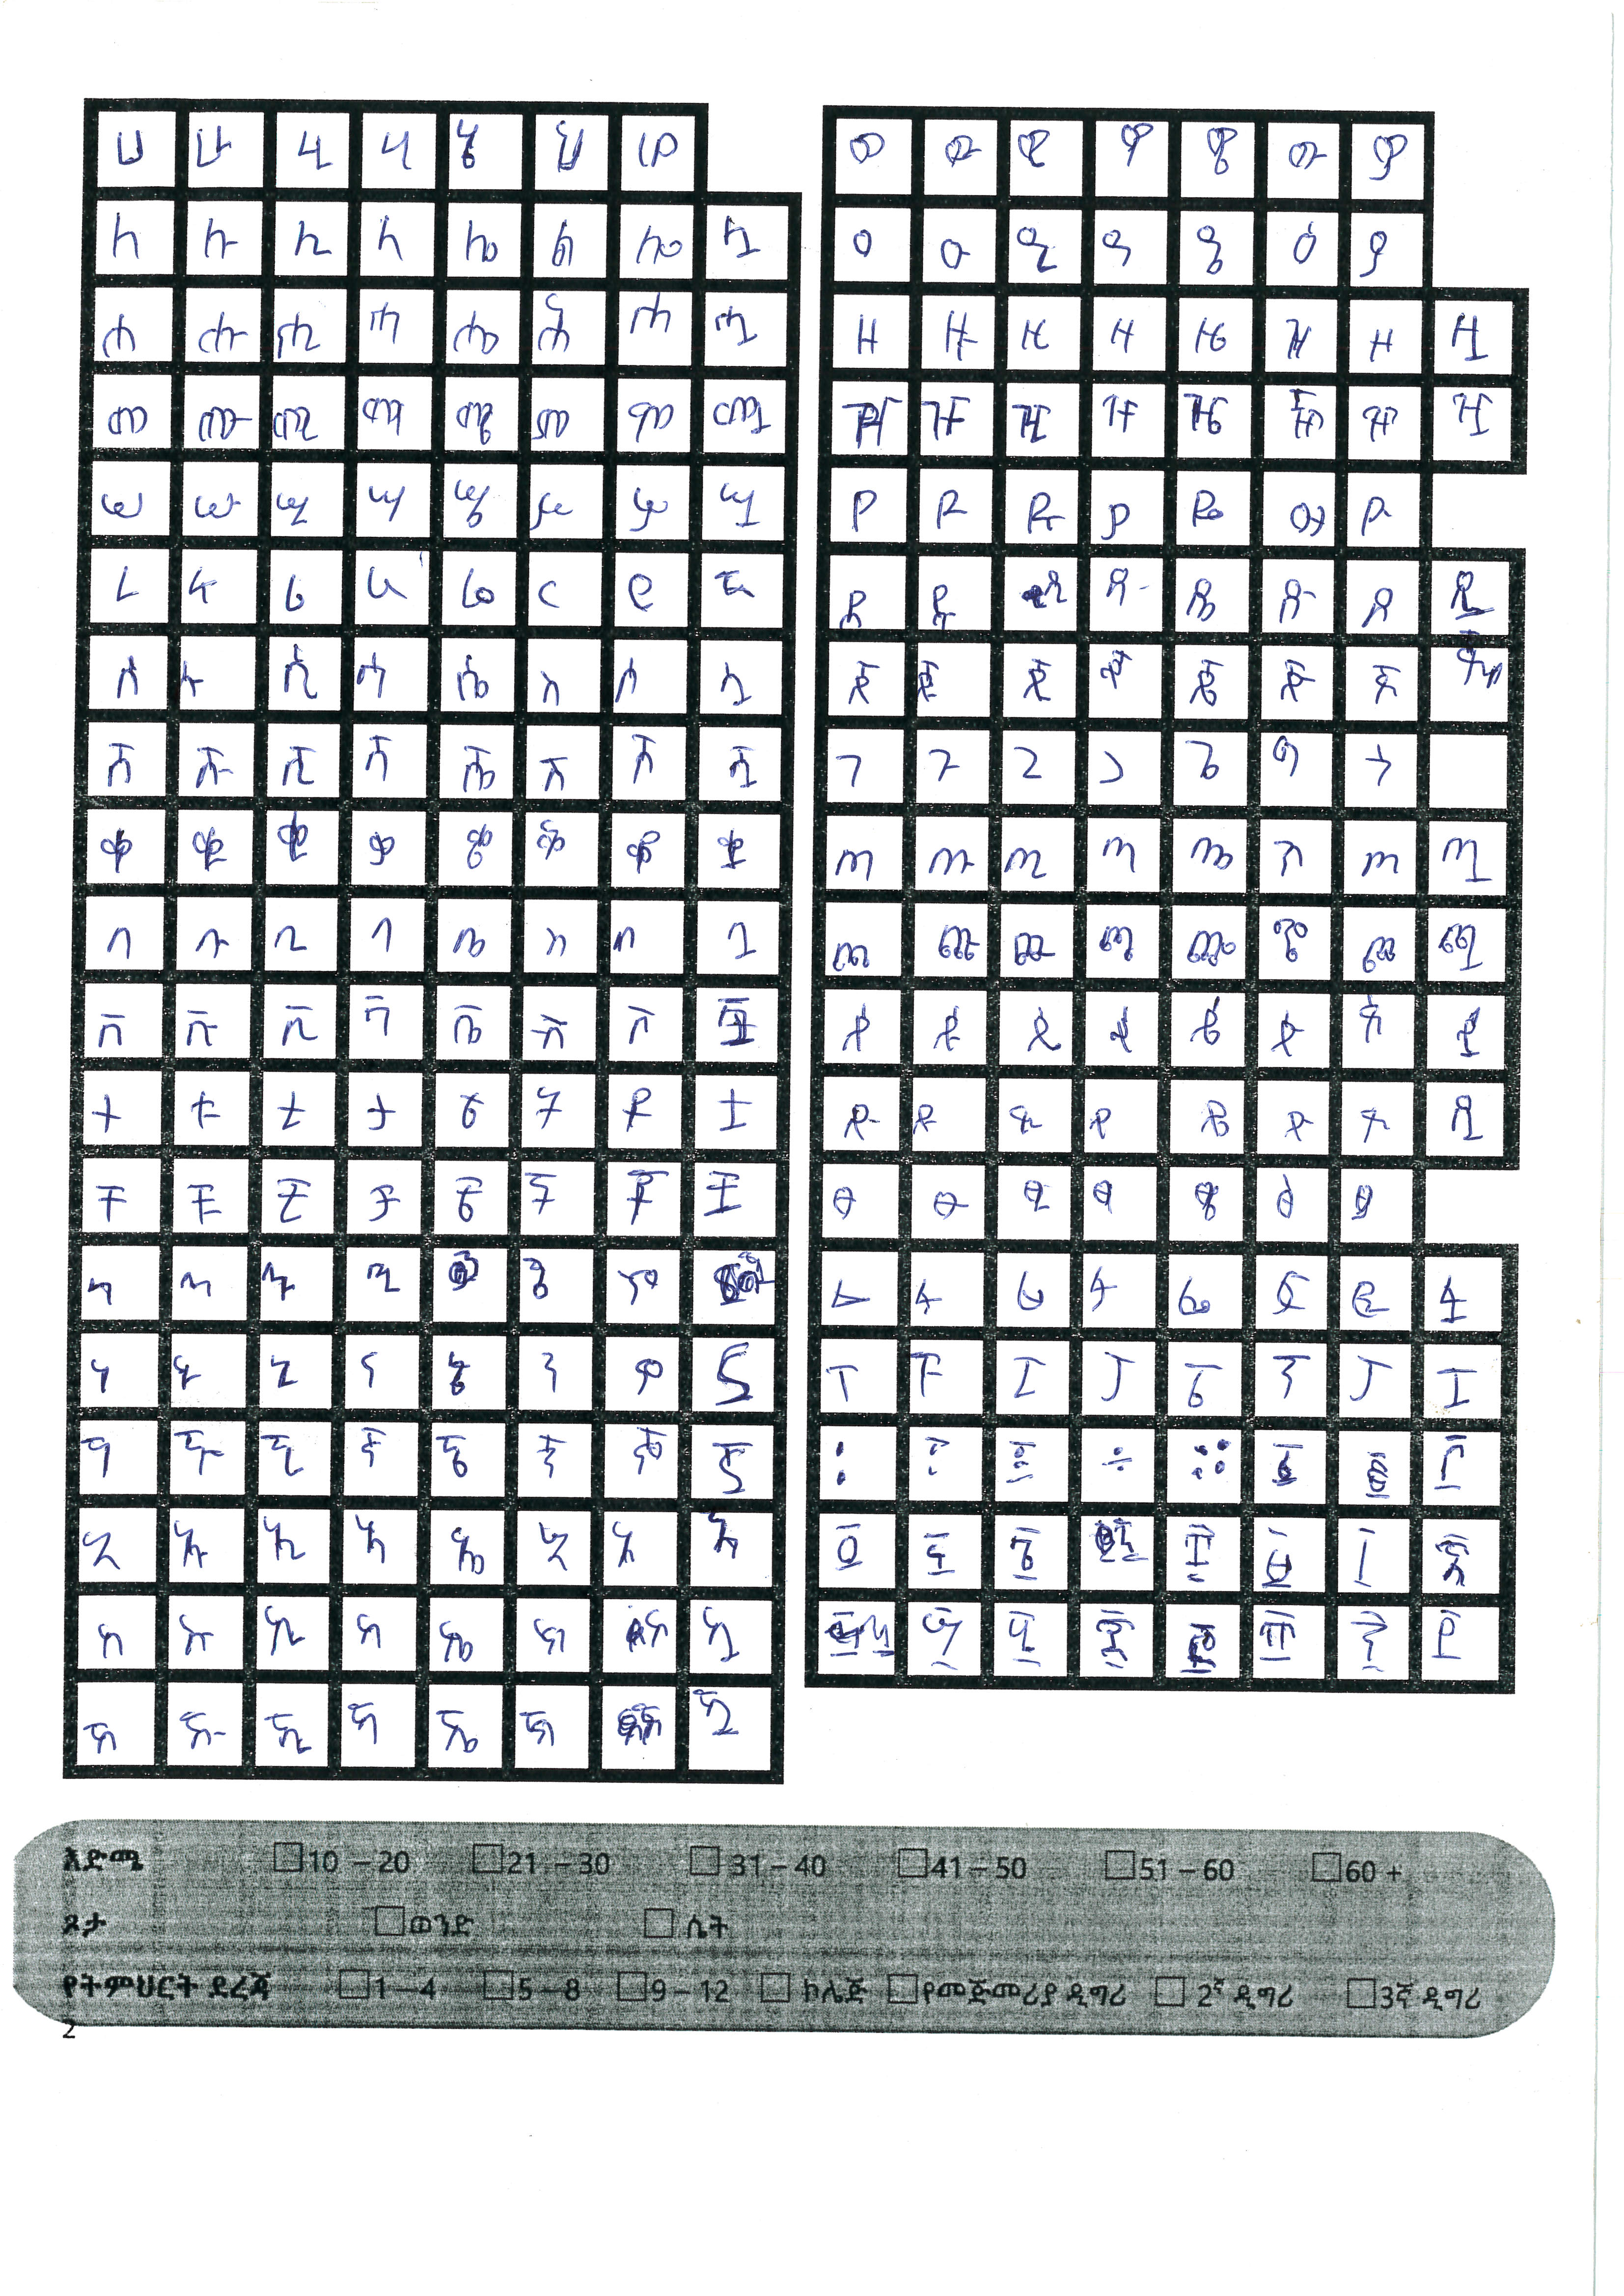 ሀ ሁ ሂ ሃ ሄ ህ ሆ
ለ ሉ ሊ ላ ሌ ል ሎ ሏ
ሐ ሑ ሒ ሓ ሔ ሕ ሖ ሗ
መ ሙ ሚ ማ ሜ ም ሞ ሟ
ሠ ሡ ሢ ሣ ሤ ሥ ሦ ሧ
ረ ሩ ሪ ራ ሬ ር ሮ ሯ
ሰ ሱ ሲ ሳ ሴ ስ ሶ ሷ
ሸ ሹ ሺ ሻ ሼ ሽ ሾ ሿ
ቀ ቁ ቂ ቃ ቄ ቅ ቆ ቋ
በ ቡ ቢ ባ ቤ ብ ቦ ቧ
ቨ ቩ ቪ ቫ ቬ ቭ ቮ ቯ
ተ ቱ ቲ ታ ቴ ት ቶ ቷ
ቸ ቹ ቺ ቻ ቼ ች ቾ ቿ
ኀ ኁ ኂ ኄ ኆ
ነ ኑ ኒ ና ኔ ን ኖ ኗ
ኘ ኙ ኚ ኛ ኜ ኝ ኞ ኟ
አ ኡ ኢ ኣ ኤ እ ኦ ኧ
ከ ኩ ኪ ካ ኬ ክ ኮ ኳ
ኸ ኹ ኺ ኻ ኼ ኽ ዃ
ወ ዉ ዊ ዋ ዌ ው ዎ
ዐ ዑ ዒ ዓ ዔ ዕ ዖ
ዘ ዙ ዚ ዛ ዜ ዝ ዞ ዟ
ዠ ዡ ዢ ዣ ዤ ዥ ዦ ዧ
የ ዩ ዪ ያ ዬ ይ ዮ
ደ ዱ ዲ ዳ ዴ ድ ዶ ዷ
ጀ ጁ ጂ ጃ ጄ ጅ ጆ
ገ ጉ ጊ ጋ ጌ ግ ጎ
ጠ ጡ ጢ ጣ ጤ ጥ ጦ ጧ
ጨ ጩ ጪ ጫ ጬ ጭ ጮ ጯ
ጰ ጱ ጲ ጳ ጴ ጵ ጶ ጷ
ጸ ጹ ጺ ጻ ጼ ጽ ጾ ጿ
ፀ ፁ ፂ ፃ ፄ ፅ ፆ
ፈ ፉ ፊ ፋ ፌ ፍ ፎ ፏ
ፐ ፑ ፒ ፓ ፔ ፕ ፖ ፗ
፡ ፣ ፤ ፥ ፨ ፩ ፪ ፫
፬ ፭ ፮ ፯ ፰ ፱ ፲ ፳
፵ ፶ ፷ ፸ ፹ ፺ ፻
እድሜ 10 – 20 21 – 30 31 – 40 41 – 50 51 – 60 60 +
ጾታ ወንድ ሴት
የትምህርት ደረጃ 1 – 4 5 – 8 9 – 12 ኮሌጅ የመጀመሪያ ዲግሪ 2ኛ ዲግሪ 3ኛ ዲግሪ
2